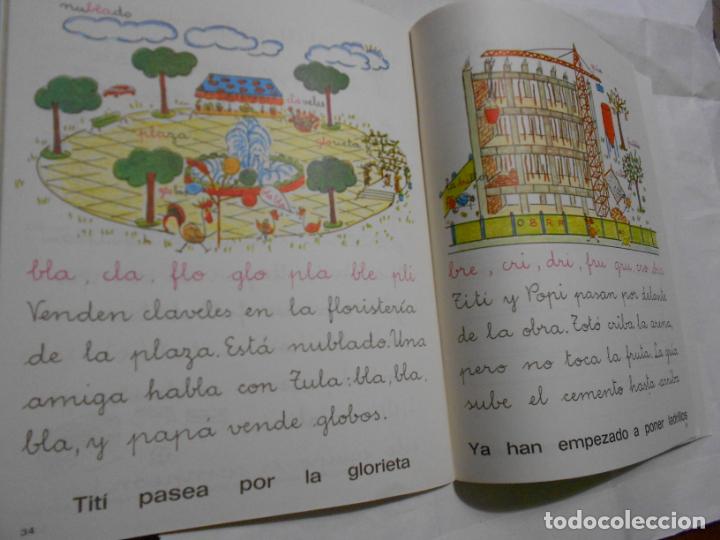 nublado
claveles
plaza
glorieta
bla, cla, flo glo pla ble pli
Venden claveles en la floristería
de la plaza. Está nublado. Una
amiga habla con Tula: bla, bla,
bla, y papá vende globos.
Tití pasea por la glorieta
34
OBRA
bre, cri, dri, fru gru, cro
Tití y Popi pasan por delante
de la obra. Totó criba la arena,
pero no toca la fruta. La grúa
sube el cemento hasta arriba
Ya han empezado a poner ladrillos
todocoleccion